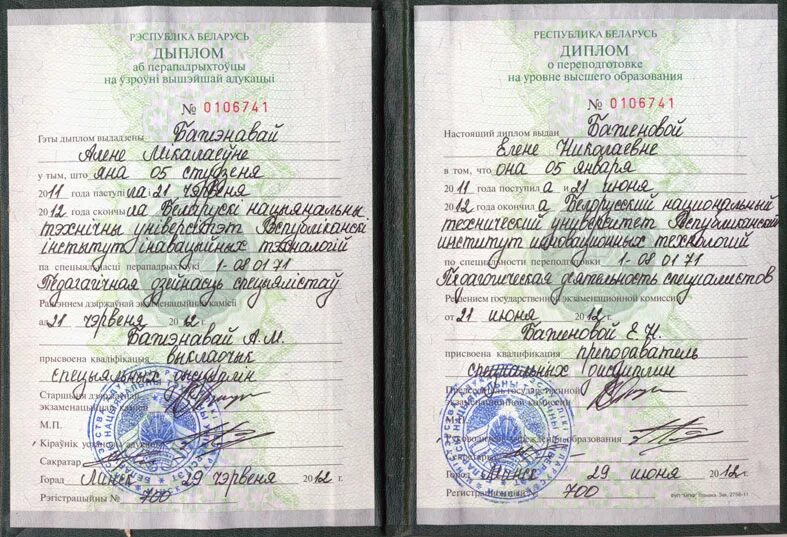 РЭСПУБЛІКА БЕЛАРУСЬ
ДЫПЛОМ
аб перападрыхтоўцы
на ўзроўні вышэйшай адукацыі
№ 0106741
Гэты дыплом выдадзены Бажэнавай
Алене Мікалаеўне
у тым, што яна 05 студзеня
2011 года паступіла 21 чэрвеня
2012 года скончыла Беларускі нацыянальны
тэхнічны універсітэт Рэспубліканскі
інстытут інавацыйных тэхналогій
па спецыяльнасці перападрыхтоўкі 1-08 01 71
Педагагічная дзейнасць спецыялістаў
Рашэннем дзяржаўнай экзаменацыйнай камісіі
ад 21 чэрвеня 2012 г.
Бажэнавай А.М.
прысвоена кваліфікацыя выкладчык
спецыяльных дысцыплін
Старшыня дзяржаўнай
экзаменацыйнай камісіі
М.П.
Кіраўнік установы адукацыі
Сакратар
Горад Мінск 29 чэрвеня 2012 г.
Рэгістрацыйны № 700
РЕСПУБЛИКА БЕЛАРУСЬ
ДИПЛОМ
о переподготовке
на уровне высшего образования
№ 0106741
Настоящий диплом выдан Баженовой
Елене Николаевне
в том, что она 05 января
2011 года поступила и 21 июня
2012 года окончила Белорусский национальный
технический университет Республиканский
институт инновационных технологий
по специальности переподготовки 1-08 01 71
Педагогическая деятельность специалистов
Решением государственной экзаменационной комиссии
от 21 июня 2012 г.
Баженовой Е.Н.
присвоена квалификация преподаватель
специальных дисциплин
Председатель государственной
экзаменационной комиссии
М.П.
Руководитель учреждения образования
Секретарь
Город Минск 29 июня 2012 г.
Регистрационный № 700